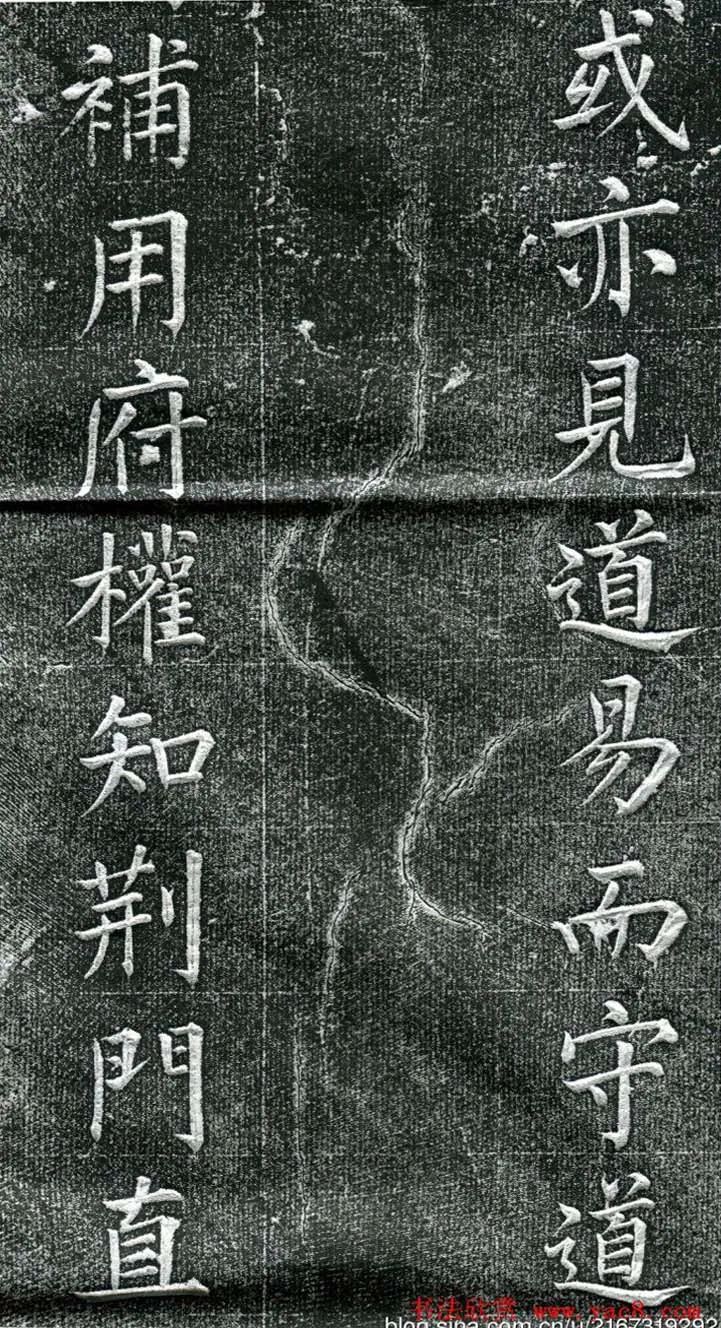 或亦見道易而守道
補用府權知荆門直
书法欣赏 www.yac8.com
blog.sina.com.cn/u/2167319292